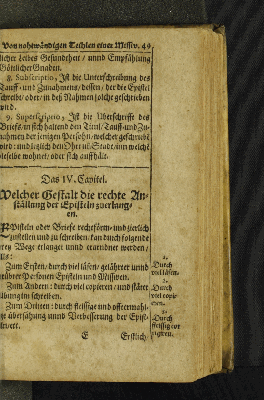 Von nohtwändigen Teihlen einer Missiv. 49
licher Leibes Gesundheit / unnd Empfählung
Göttlicher Gnaden.
8. Subscriptio, Ist die Unterschreibung des
Tauff- und Zunahmens / dessen / der die Epistel
schreibt / oder / in des Nahmen solche geschrieben
wird.
9. Superscriptio, Ist die Uberschrifft des
Briefs / in sich haltend den Titul / Tauff- und Zu-
nahmen derjenigen Persohn / welcher geschriebẽ
wird: und letzlich den Ohrt uñ Stadt / inn welche
dieselbe wohnet / oder sich aufhält.
Das IV. Capitel.
Welcher Gestalt die rechte An-
ställung der Episteln zuerlang-
en.
Episteln oder Briefe rechtförm- und zierlich
zustellen und zu schreiben / kan durch folgende
drey Wege erlanget unnd zuerdnet werden /
als:
Zum Ersten / durch viel läsen / gelährter unnd
erübter Personen Episteln und Missiven.
Zum Andern: durch viel copieren / und stäter
übung im schreiben.
Zum Dritten: durch fleissige und offtermahli-
ge übersähung unnd Verbesserung der Epist-
1.
Durch
viel läsen.
2.
Durch
viel copie-
ren.
3.
Durch
fleissig cor-
E Erstlich